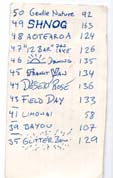 50 Gentle Nature 92
49 SHNOG 163
48 AOTEAROA 124
47 "12 BAR" 126
46 DAWNING 135
45 134
44 DESERT ROSE 136
43 FIELD DAY 133
41 LIMONAI 58
39 BAYOU 107
35 GLITTER 129